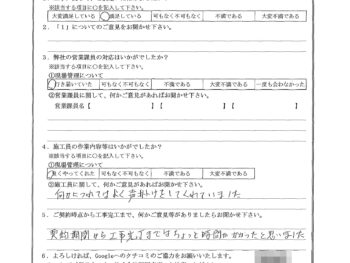 ※該当する項目に○を記入して下さい。
大変満足している 満足している 可もなく不可もなく 不満である 大変不満である
2.「1」についてのご意見をお聞かせ下さい。
3.弊社の営業課員の対応はいかがでしたか?
※該当する項目に○を記入して下さい。
①現場管理について
行き届いていた 可もなく不可もなく 不満である 大変不満である 一度も会わなかった
②営業課員に関して、何かご意見があればお聞かせ下さい。
営業課員名【 】【 】【 】
4.施工員の作業内容等はいかがでしたか?
※該当する項目に○を記入して下さい。
①現場管理について
良くやってくれた 可もなく不可もなく 不満である 大変不満である
②施工員に関して、何かご意見があればお聞かせ下さい。
何かにつれてはよく声掛けをしてくれていました
5.ご契約時点から工事完工まで、何かご意見等がありましたらお聞かせ下さい。
契約期間から工事完了まではちょっと時間がかかったと思いました
6.よろしければ、Googleへのクチコミのご協力をお願いいたします。